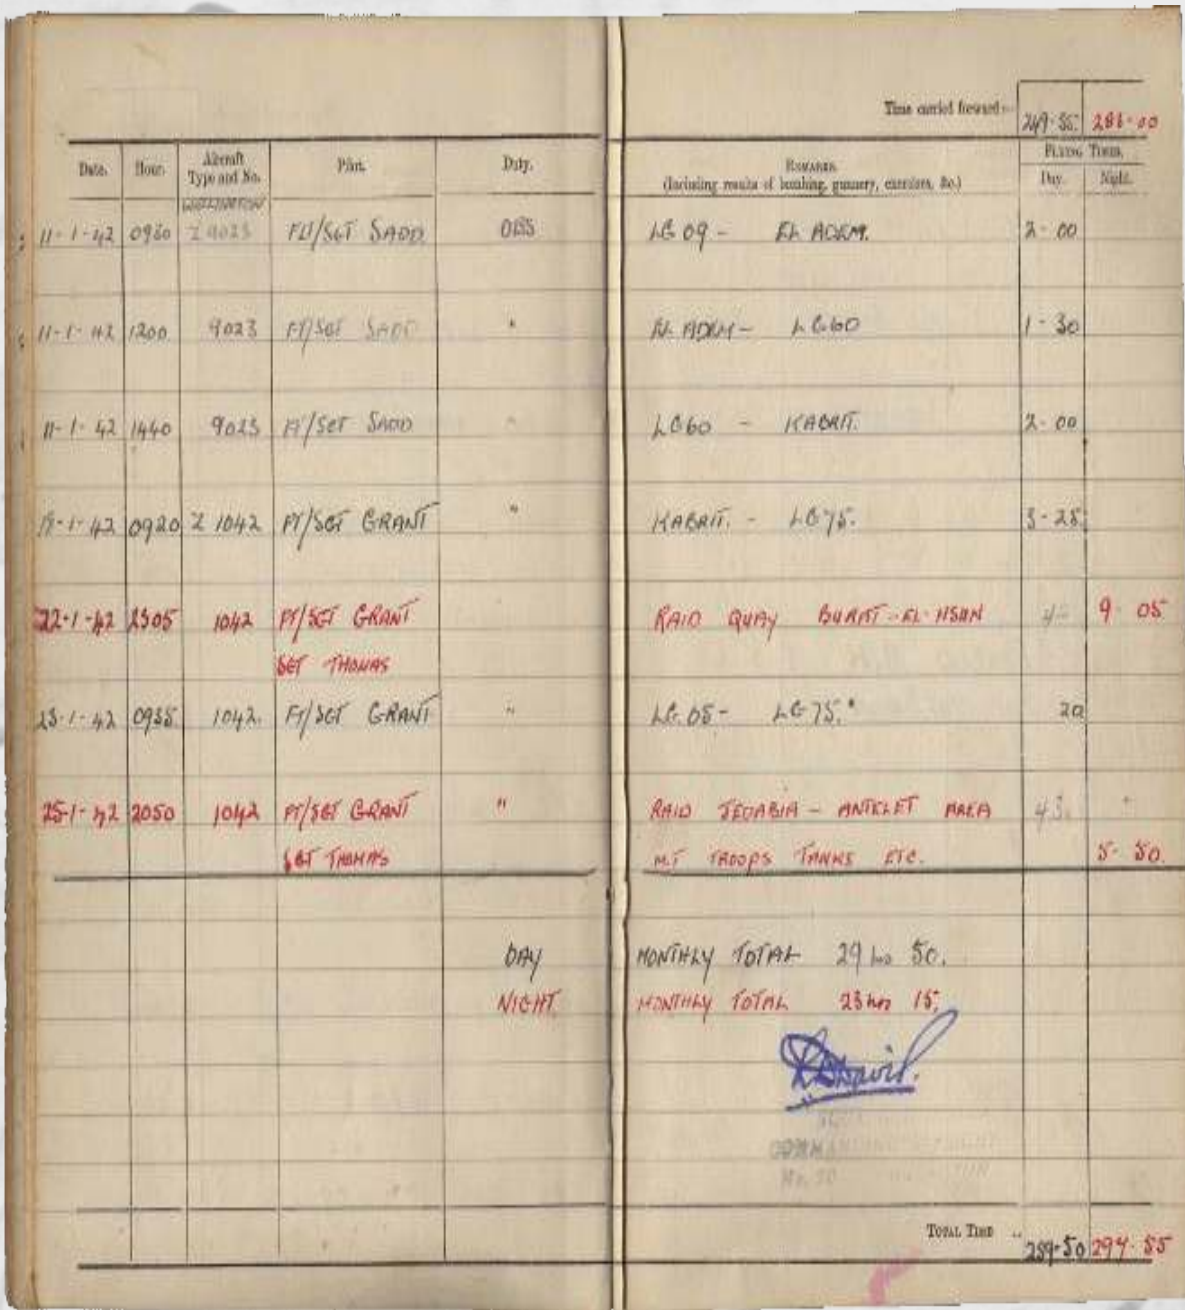 Time carried forward:— 249-35. 280-00
Date. Hour. Aircraft Type and No. Pilot. Duty. REMARKS (Including results of bombing, gunnery, exercises, &c.) FLYING TIMES. Day. Night.
WELLINGTON
11-1-42 0930 Z 9023 FLT/SGT SADD OBS LG 09 - EL ADEM. 2-00
11-1-42 1200 9023 FT/SGT SADD " EL ADEM - LG60 1-30
11-1-42 1440 9023 FT/SGT SADD " LG60 - KABRIT. 2-00
-1-42 0920 Z 1042 FT/SGT GRANT " KABRIT. - LG75. 3-25
22-1-42 2305 1042 FT/SGT GRANT RAID QUAY BURAT-EL-HSUN 9 05
SGT THOMAS
23-1-42 0935 1042. FT/SGT GRANT " LG.05- LG75. 20
25-1-42 2050 1042 FT/SGT GRANT " RAID JEDABIA - ANTELET AREA
SGT THOMAS M.T TROOPS TANKS ETC. 5-50
DAY MONTHLY TOTAL 29 hrs 50.
NIGHT. MONTHLY TOTAL 23 hrs 15.
TOTAL TIME .. 289-50 294-55